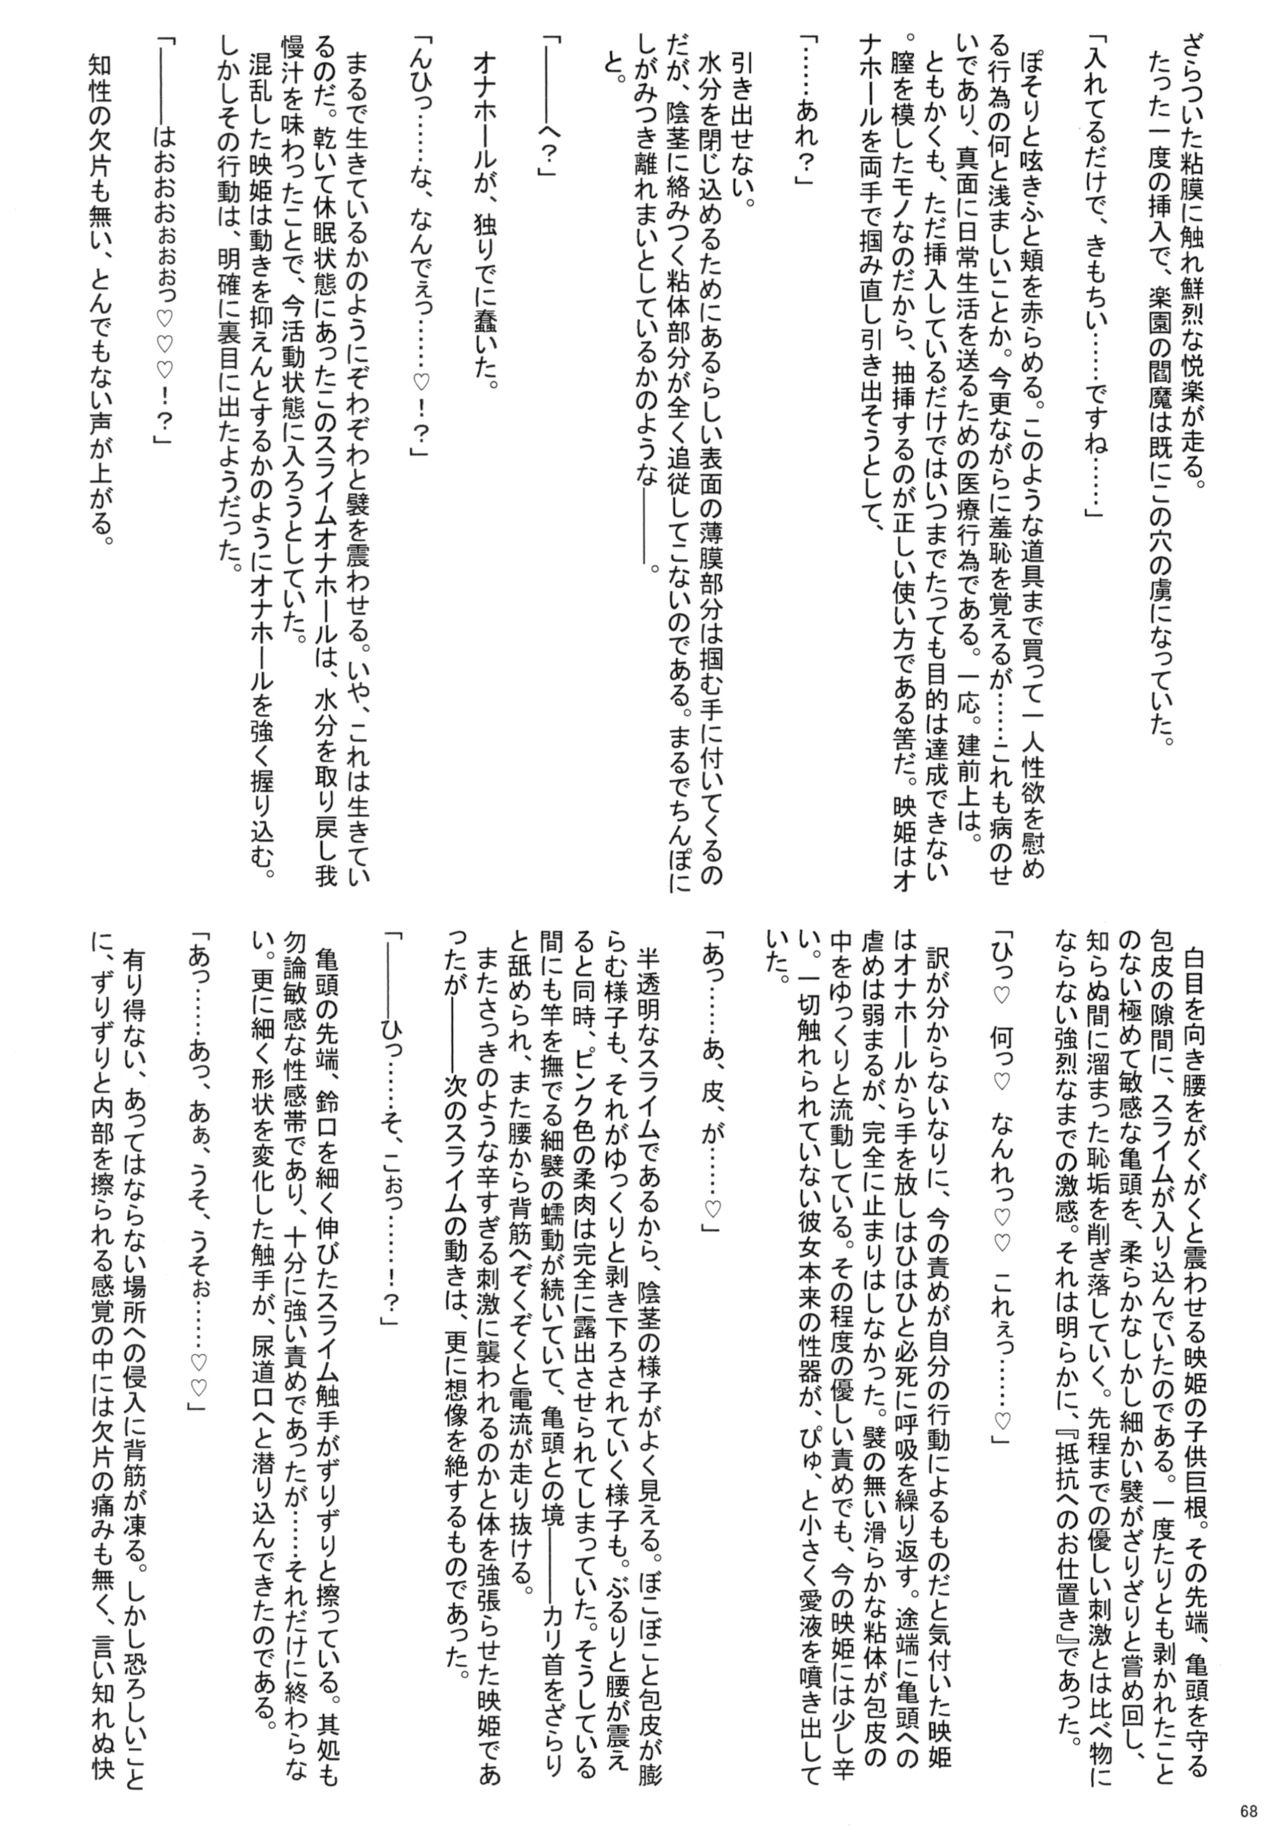 ざらついた粘膜に触れ鮮烈な悦楽が走る。
たった一度の挿入で、楽園の閻魔は既にこの穴の虜になっていた。
「入れてるだけで、きもちい……ですね……」
ぽそりと呟きふと頬を赤らめる。このような道具まで買って一人性欲を慰め
る行為の何と浅ましいことか。今更ながらに羞恥を覚えるが……これも病のせ
いであり、真面に日常生活を送るための医療行為である。一応。建前上は。
ともかくも、ただ挿入しているだけではいつまでたっても目的は達成できない
。膣を模したモノなのだから、抽挿するのが正しい使い方である筈だ。映姫はオ
ナホールを両手で掴み直し引き出そうとして、
「……あれ？」
引き出せない。
水分を閉じ込めるためにあるらしい表面の薄膜部分は掴む手に付いてくるの
だが、陰茎に絡みつく粘体部分が全く追従してこないのである。まるでちんぽに
しがみつき離れまいとしているかのような――。
と。
「――へ？」
オナホールが、独りでに蠢いた。
「んひっ……な、なんでぇっ……♡！？」
まるで生きているかのようにぞわぞわと襞を震わせる。いや、これは生きてい
るのだ。乾いて休眠状態にあったこのスライムオナホールは、水分を取り戻し我
慢汁を味わったことで、今活動状態に入ろうとしていた。
混乱した映姫は動きを抑えんとするかのようにオナホールを強く握り込む。
しかしその行動は、明確に裏目に出たようだった。
「――はおおおぉぉぉっ♡♡♡！？」
知性の欠片も無い、とんでもない声が上がる。
白目を向き腰をがくがくと震わせる映姫の子供巨根。その先端、亀頭を守る
包皮の隙間に、スライムが入り込んでいたのである。一度たりとも剥かれたこと
のない極めて敏感な亀頭を、柔らかなしかし細かい襞がざりざりと嘗め回し、
知らぬ間に溜まった恥垢を削ぎ落していく。先程までの優しい刺激とは比べ物に
ならない強烈なまでの激感。それは明らかに、『抵抗へのお仕置き』であった。
「ひっ♡　何っ♡　なんれっ♡♡　これぇっ……♡」
訳が分からないなりに、今の責めが自分の行動によるものだと気付いた映姫
はオナホールから手を放しはひはひと必死に呼吸を繰り返す。途端に亀頭への
虐めは弱まるが、完全に止まりはしなかった。襞の無い滑らかな粘体が包皮の
中をゆっくりと流動している。その程度の優しい責めでも、今の映姫には少し辛
い。一切触れられていない彼女本来の性器が、ぴゅ、と小さく愛液を噴き出して
いた。
「あっ……あ、皮、が……♡」
半透明なスライムであるから、陰茎の様子がよく見える。ぼこぼこと包皮が膨
らむ様子も、それがゆっくりと剥き下ろされていく様子も。ぶるりと腰が震え
ると同時、ピンク色の柔肉は完全に露出させられてしまっていた。そうしている
間にも竿を撫でる細襞の蠕動が続いていて、亀頭との境――カリ首をざらり
と舐められ、また腰から背筋へぞくぞくと電流が走り抜ける。
またさっきのような辛すぎる刺激に襲われるのかと体を強張らせた映姫であ
ったが――次のスライムの動きは、更に想像を絶するものであった。
「――ひっ……そ、こぉっ……！？」
亀頭の先端、鈴口を細く伸びたスライム触手がずりずりと擦っている。其処も
勿論敏感な性感帯であり、十分に強い責めであったが……それだけに終わらな
い。更に細く形状を変化した触手が、尿道口へと潜り込んできたのである。
「あっ……あっ、あぁ、うそ、うそぉ……♡♡」
有り得ない、あってはならない場所への侵入に背筋が凍る。しかし恐ろしいこと
に、ずりずりと内部を擦られる感覚の中には欠片の痛みも無く、言い知れぬ快
68